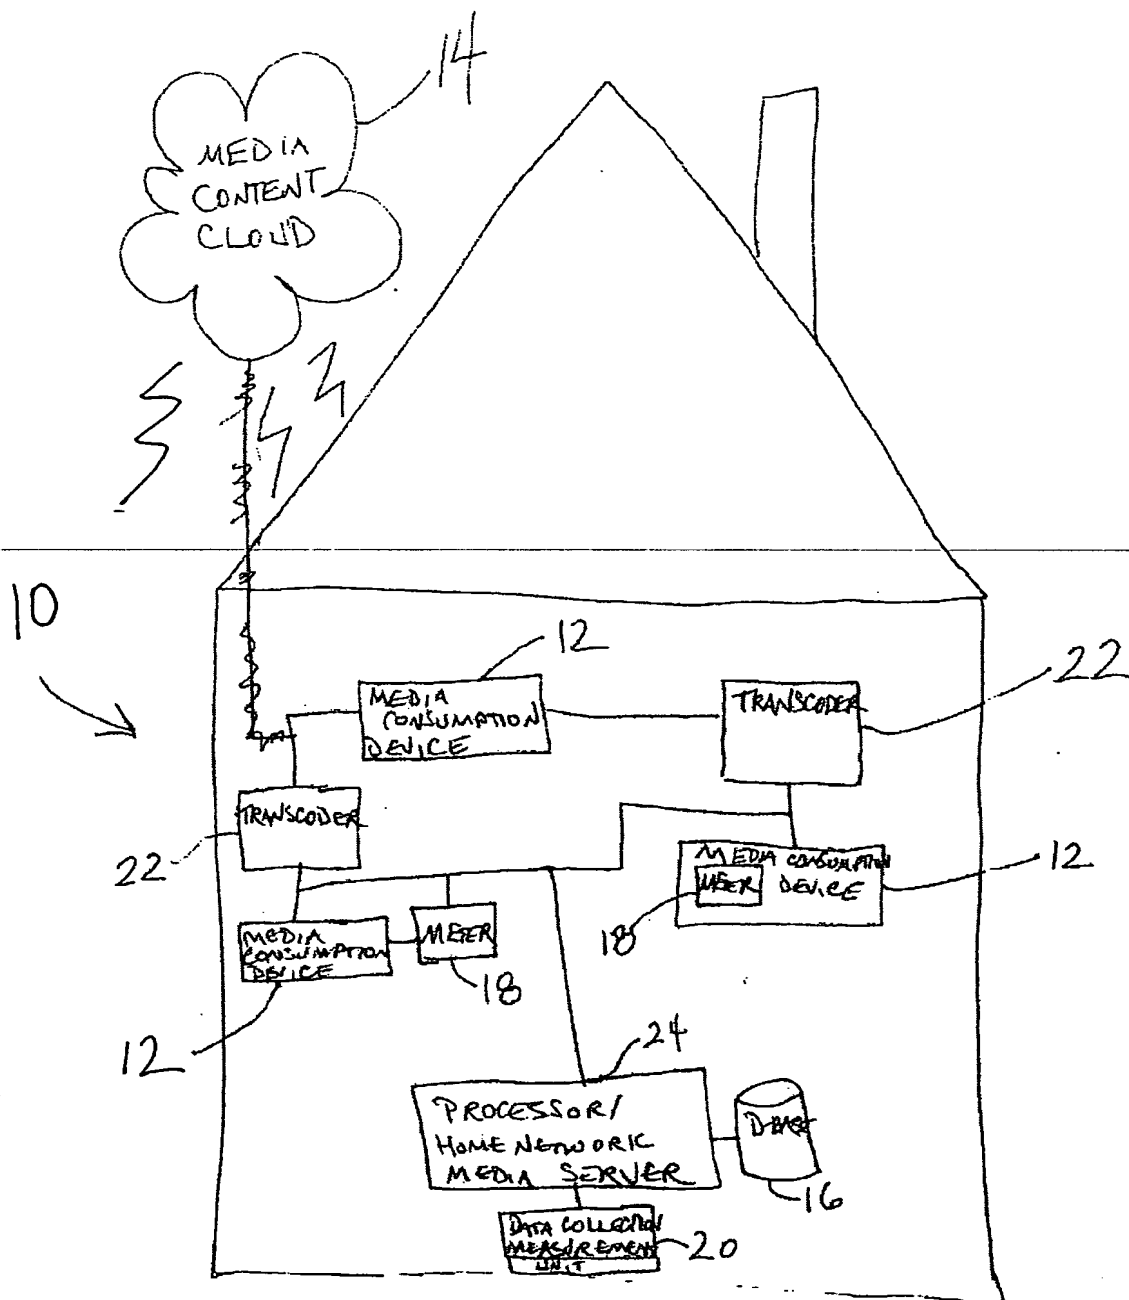 14
MEDIA
CONTENT
CLOUD
10
12
22
MEDIA
CONSUMPTION
DEVICE
TRANSCODER
TRANSCODER
22
MEDIA CONSUMPTION
DEVICE
METER
12
18
MEDIA
CONSUMPTION
DEVICE
METER
18
12
24
PROCESSOR/
HOME NETWORK
MEDIA SERVER
D-BASE
16
DATA COLLECTION
MEASUREMENT
UNIT
20